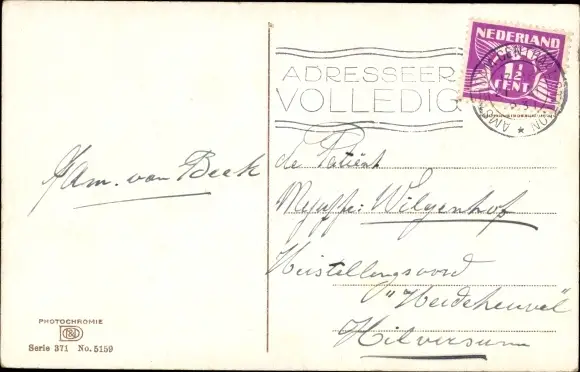 NEDERLAND
1½
CENT
ADRESSEER
VOLLEDIG
Fam. van Beek
de Patiënt
Wilgenhof
Herstellingsoord
"Heideheuvel"
Hilversum
PHOTOCHROMIE
Serie 371 No. 5159